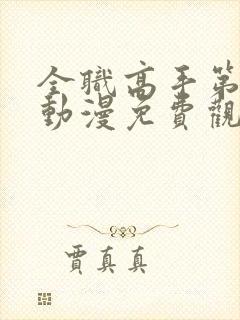 全職高手第
動漫免費觀
賈真真